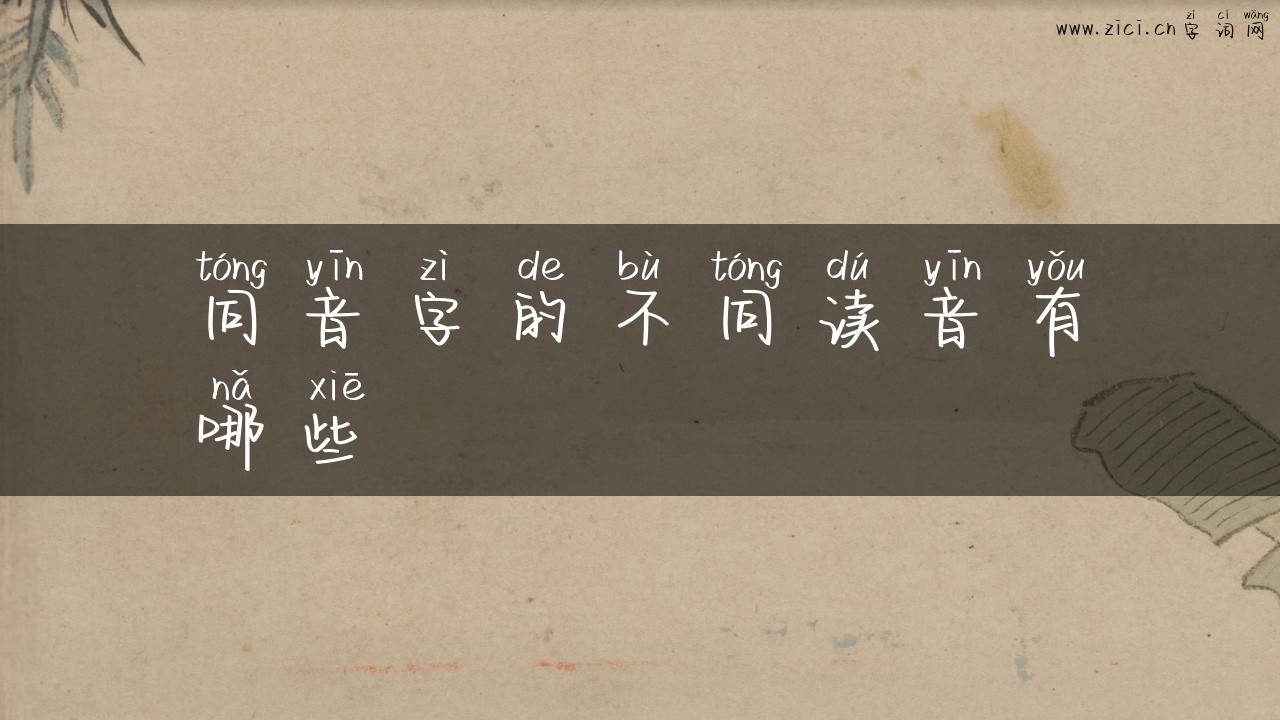 zì cí wǎng
www.zici.cn 字词网
tóng yīn zì de bù tóng dú yīn yǒu
同音字的不同读音有
nǎ xiē
哪些